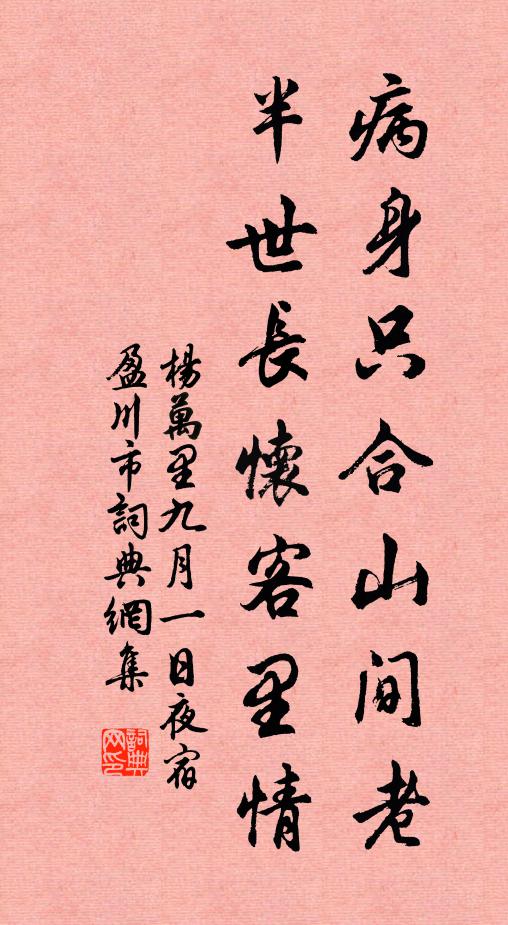 病身只合山间老
半世長懷客里情
楊萬里九月一日夜宿
盈川市詞典網集
詞典网印